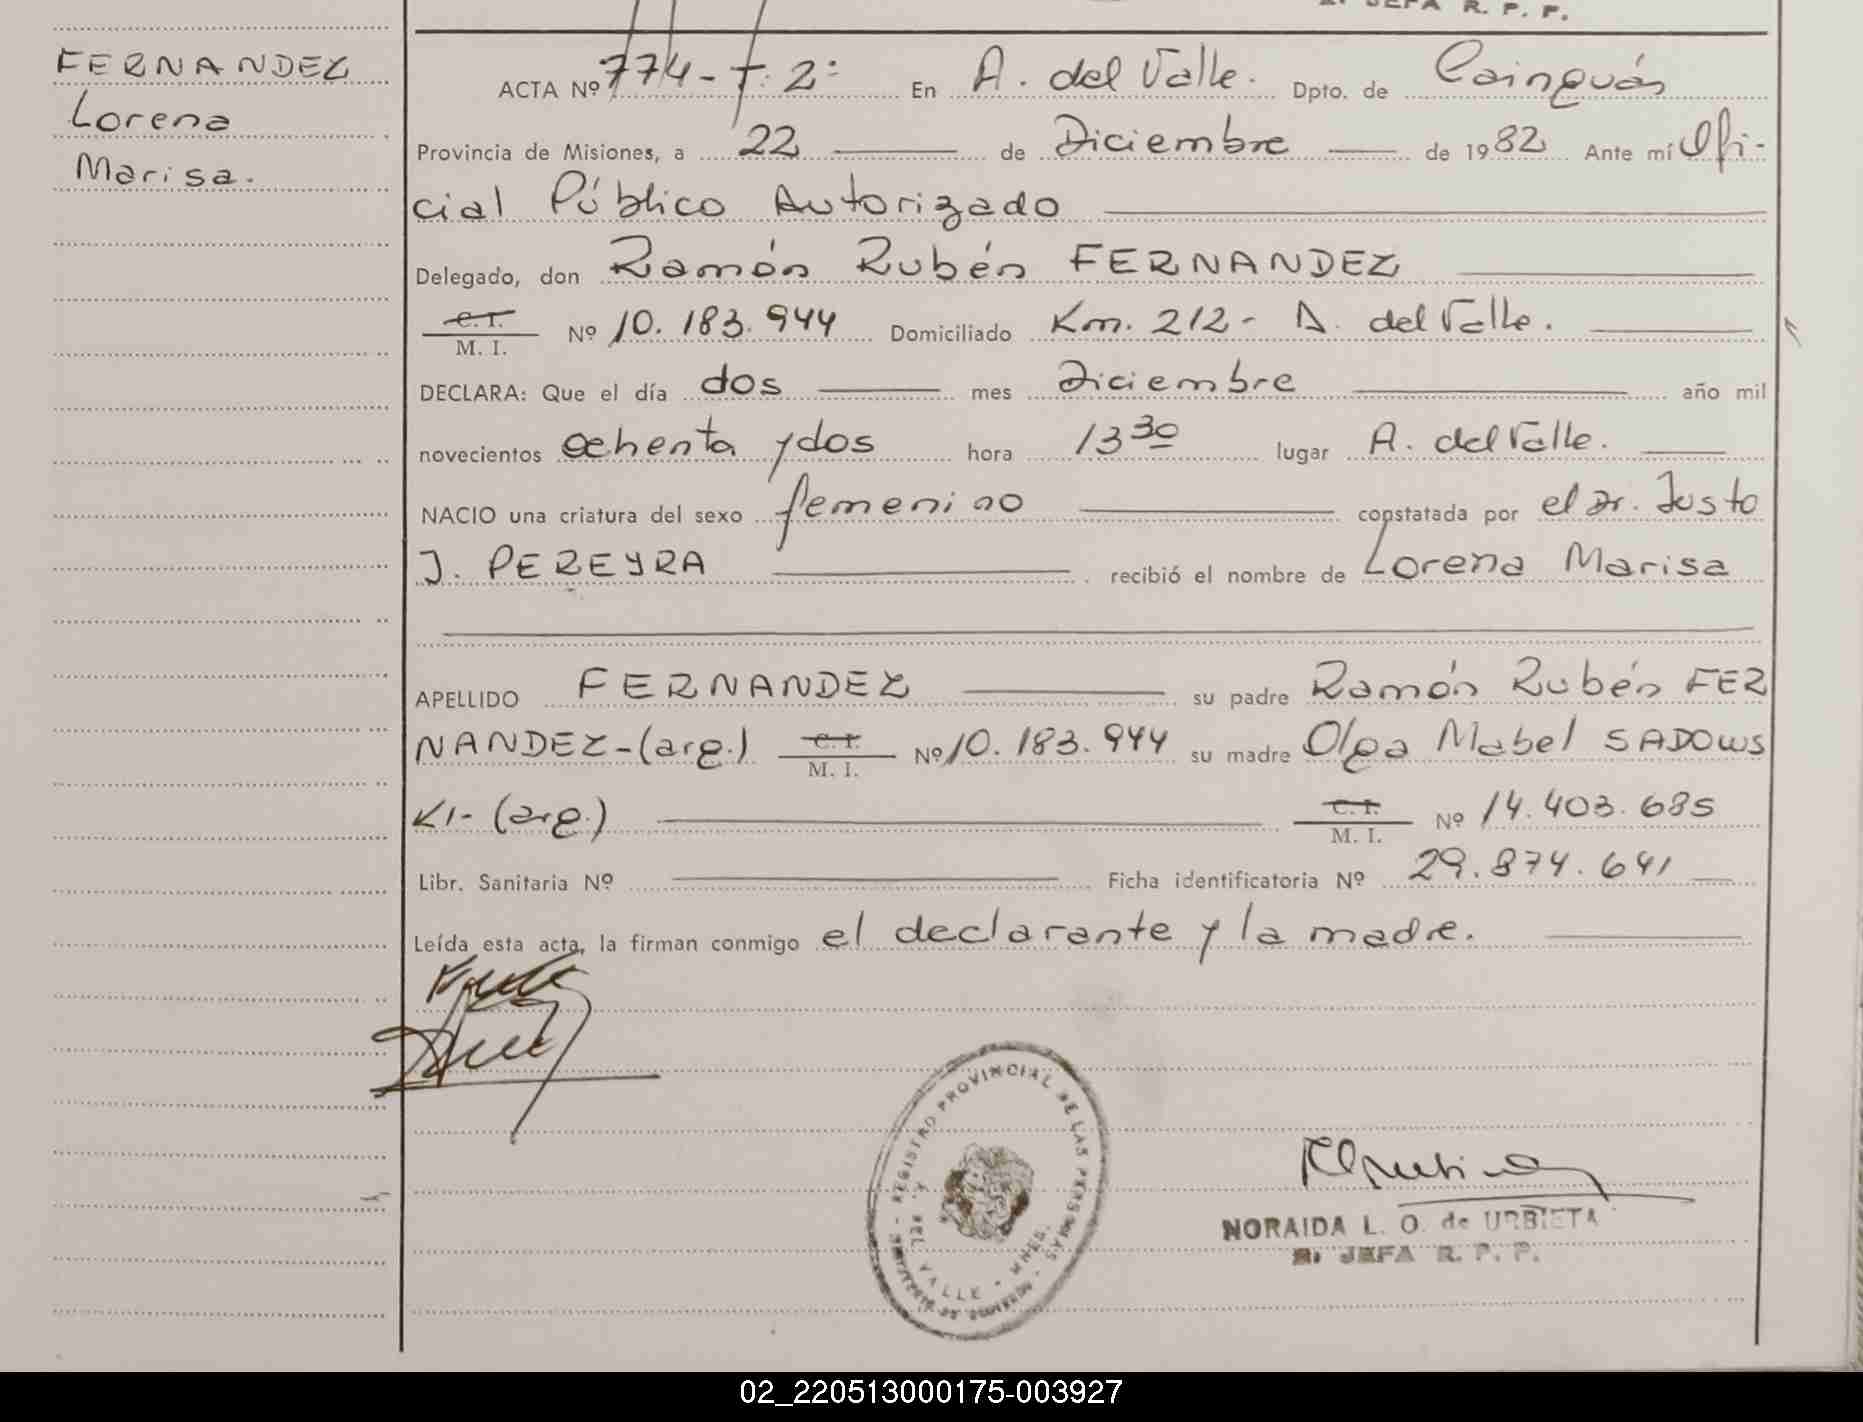 2. JEFA R. P. P.
FERNANDEZ
Lorena
Marisa.
ACTA Nº 774 - T: 2º En A. del Valle. Dpto. de Cainguás
Provincia de Misiones, a 22 de Diciembre de 1982 Ante mí Ofi-
cial Público Autorizado
Delegado, don Ramón Rubén FERNANDEZ
C. I.
M. I. Nº 10.183.944 Domiciliado Km. 212 - A. del Valle.
DECLARA: Que el día dos mes Diciembre año mil
novecientos ochenta y dos hora 13 30 lugar A. del Valle.
NACIO una criatura del sexo femenino constatada por el Dr. Justo
J. PEREYRA recibió el nombre de Lorena Marisa
APELLIDO FERNANDEZ su padre Ramón Rubén FER
NANDEZ - (arg.) C. I. M. I. Nº 10.183.944 su madre Olga Mabel SADOWS
KI - (arg.) C. I. M. I. Nº 14.403.685
Libr. Sanitaria Nº Ficha identificatoria Nº 29.874.641
Leída esta acta, la firman conmigo el declarante y la madre.
REGISTRO PROVINCIAL DE LAS PERSONAS
A. DEL VALLE - MNES.
NORAIDA L. O. de URBIETA
2. JEFA R. P. P.
02_220513000175-003927